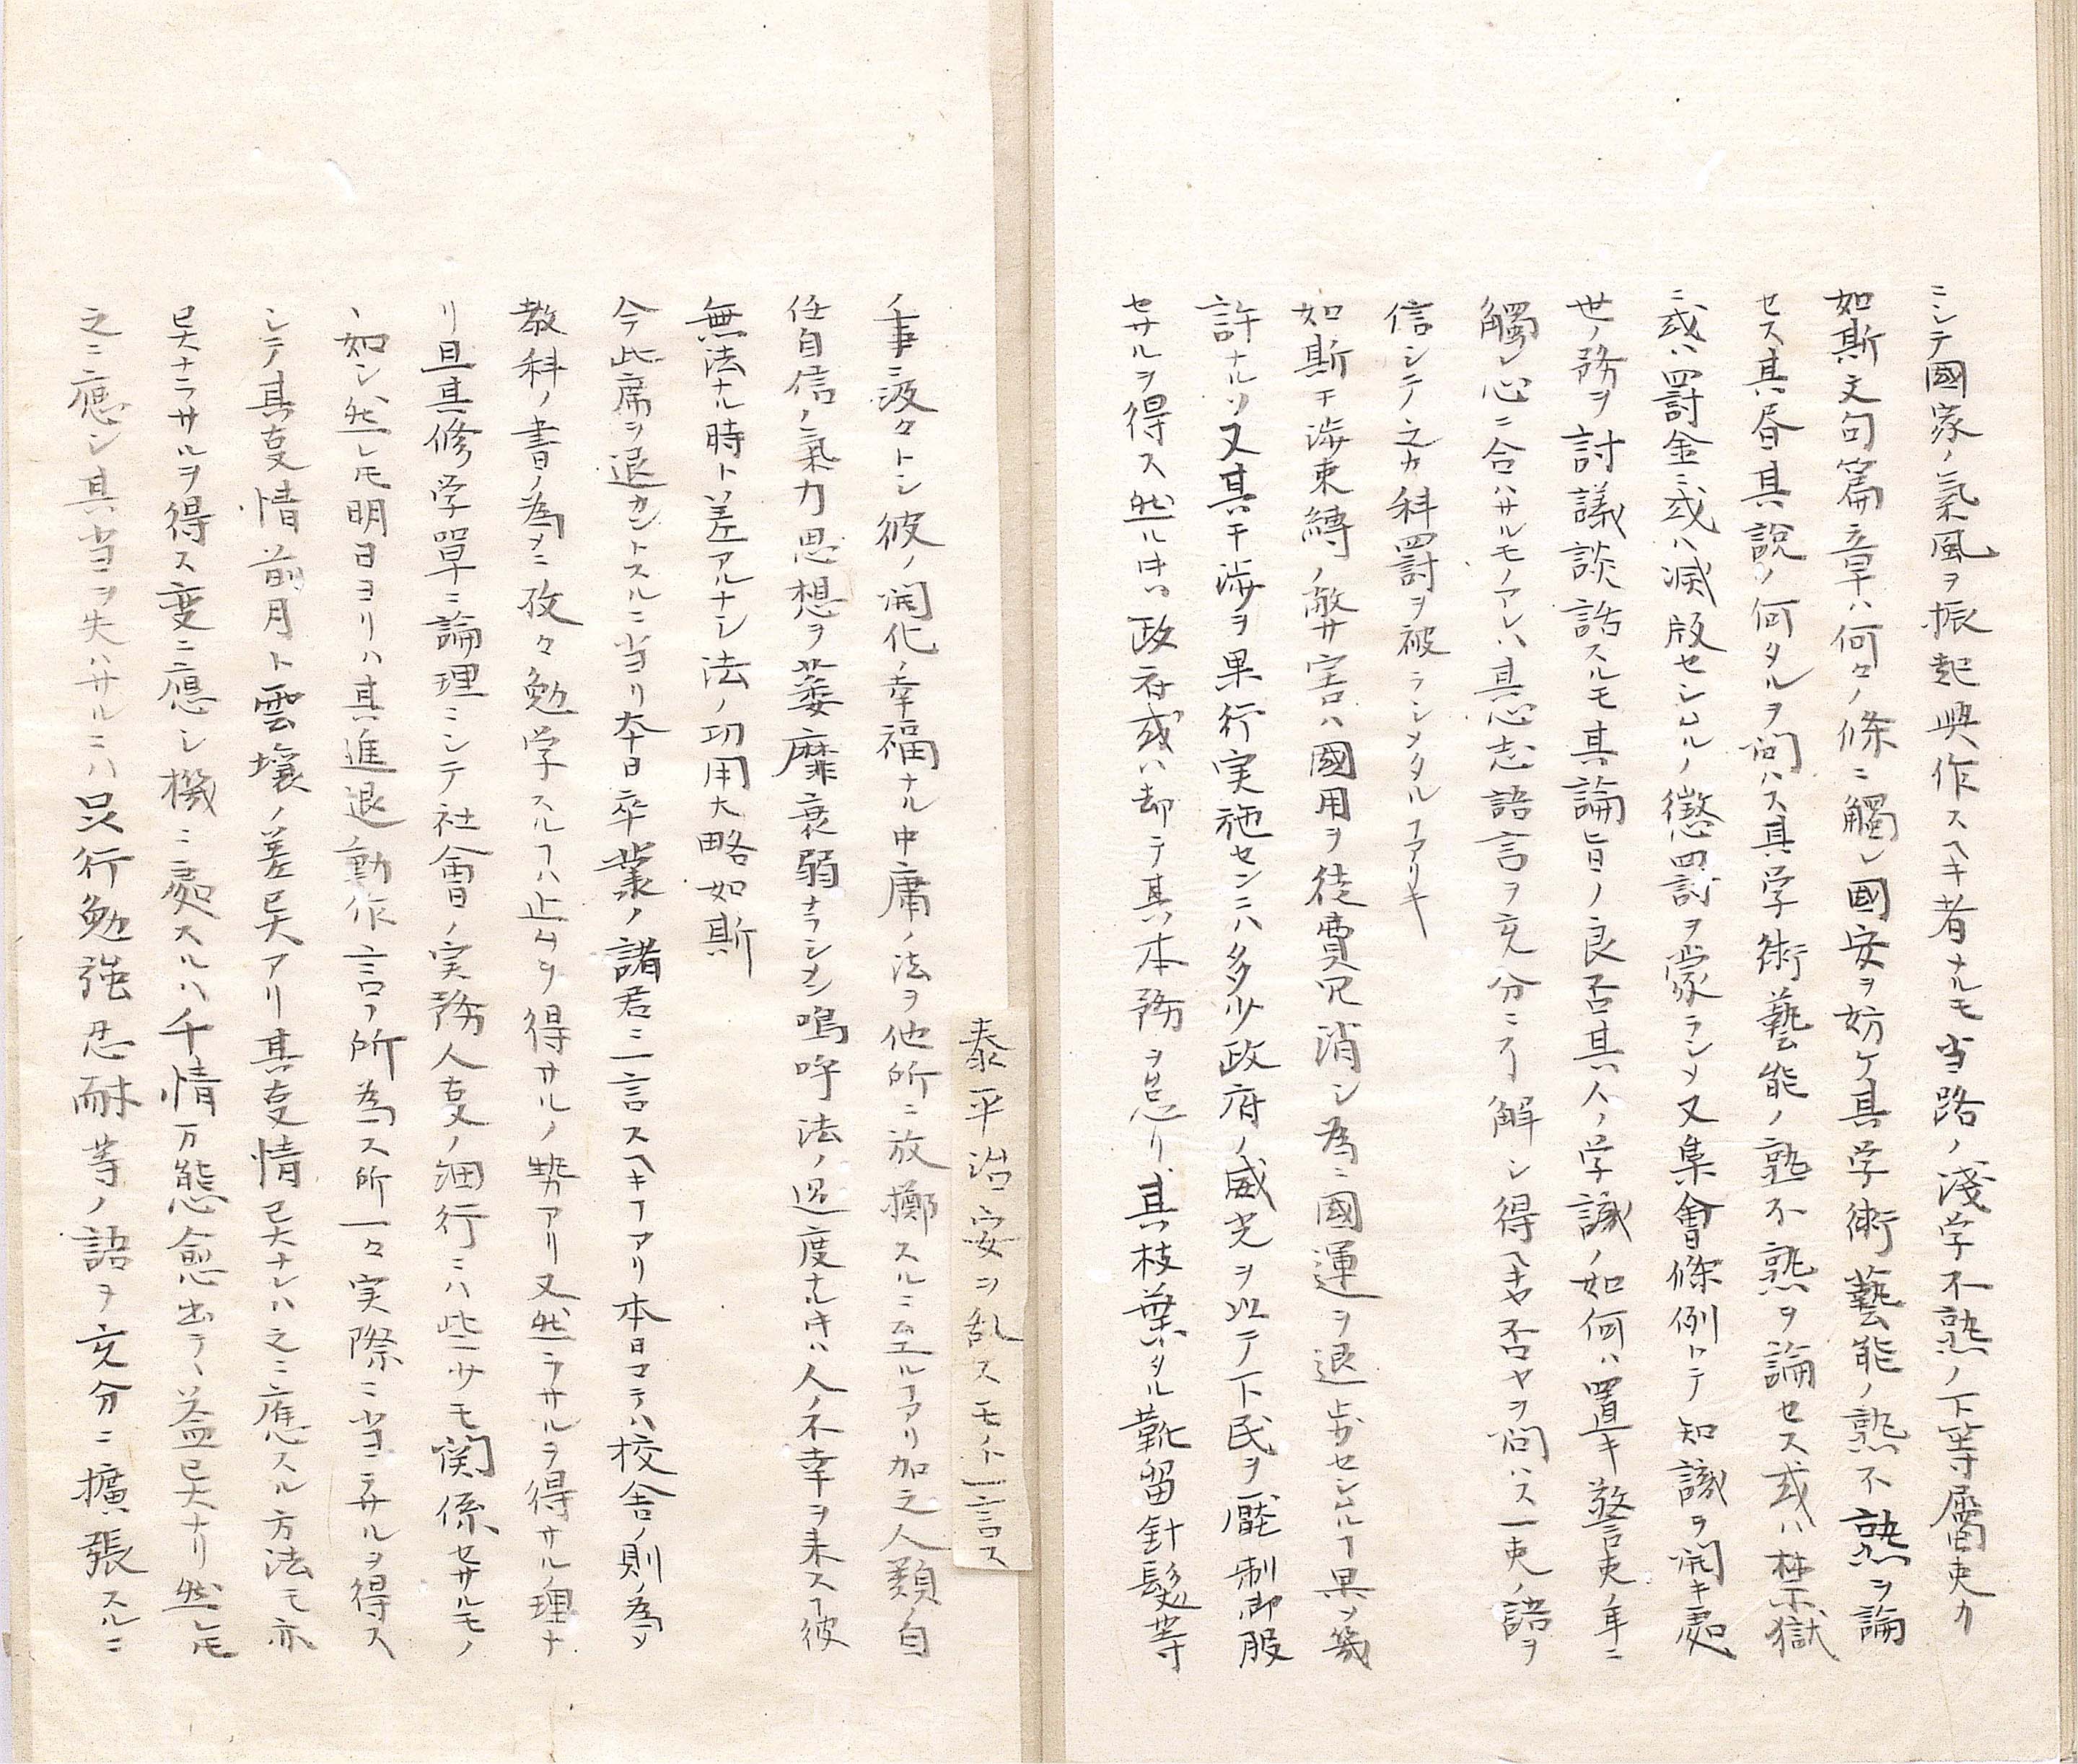 ニシテ國家ノ氣風ヲ振起興作スヘキ者ナルモ当路ノ淺学不熟ノ下等屬吏カ
如斯文句篇章ハ何々ノ條ニ觸レ國安ヲ妨ケ其学術藝能ノ熟不熟ヲ論
セス其唇其説ノ何タルヲ問ハス其学術藝能ノ熟不熟ヲ論セス或ハ禁獄
ニ或ハ罰金ニ或ハ滅版セシムルノ懲罰ヲ蒙ラシメ又集會條例トテ知識ヲ開キ處
世ノ務ヲ討議談話スルモ其論旨ノ良否其人ノ学識ノ如何ハ置キ警吏ノ耳ニ
觸レ心ニ合ハサルモノアレハ其心志語言ヲ充分ニ了解シ得ヘキヤ否ヤヲ問ハス一吏ノ語ヲ
信シテ之カ科罰ヲ被ラシメタルヿアリキ
如斯干渉束縛ノ弊害ハ國用ヲ徒費冗消シ為ニ國運ヲ退歩セシムルヿ果ヲ幾
許ナルソ又其干渉ヲ果行実施センニハ多少政府ノ威光ヲ以テ下民ヲ壓制御服
セサルヲ得ス然ルキハ政府或ハ却テ其本務ヲ怠リ其枝葉タル靴留針髮等
ノ事ニ汲々トシ彼ノ開化ノ幸福ナル中庸ノ法ヲ他所ニ放擲スルニ至ルヿアリ加之人類自
任自信ノ氣力思想ヲ萎靡衰弱ナラシメン嗚呼法ノ過度ナルキハ人ノ不幸ヲ来スヿ彼
無法ナル時ト差アルナシ法ノ功用大略如斯
泰平治安ヲ乱スモノト一言ス
今此席ヲ退カントスルニ当リ本日卒業ノ諸君ニ一言スヘキヿアリ本日マテハ校舎ノ則ノ為メ
教科ノ書ノ為メニ孜々勉学スルヿハ止ムヲ得サルノ勢アリ又然ラサルヲ得サルノ理ナ
リ且其修学單ニ論理ニシテ社會ノ実務人事ノ細行ニハ些一サモ関係セサルモノ
ヽ如シ然レモ明日ヨリハ其進退動作言フ所為ス所一々実際ニ当ラサルヲ得ス
シテ其事情前月ト雲壤ノ差異アリ其事情異ナレハ之ニ應スル方法モ亦
異ナラサルヲ得ス変ニ應シ機ニ處スルハ千情万態愈出テヽ益異ナリ然レモ
之ニ應シ其当ヲ失ハサルニハ只行勉強忍耐等ノ語ヲ充分ニ擴張スルニ